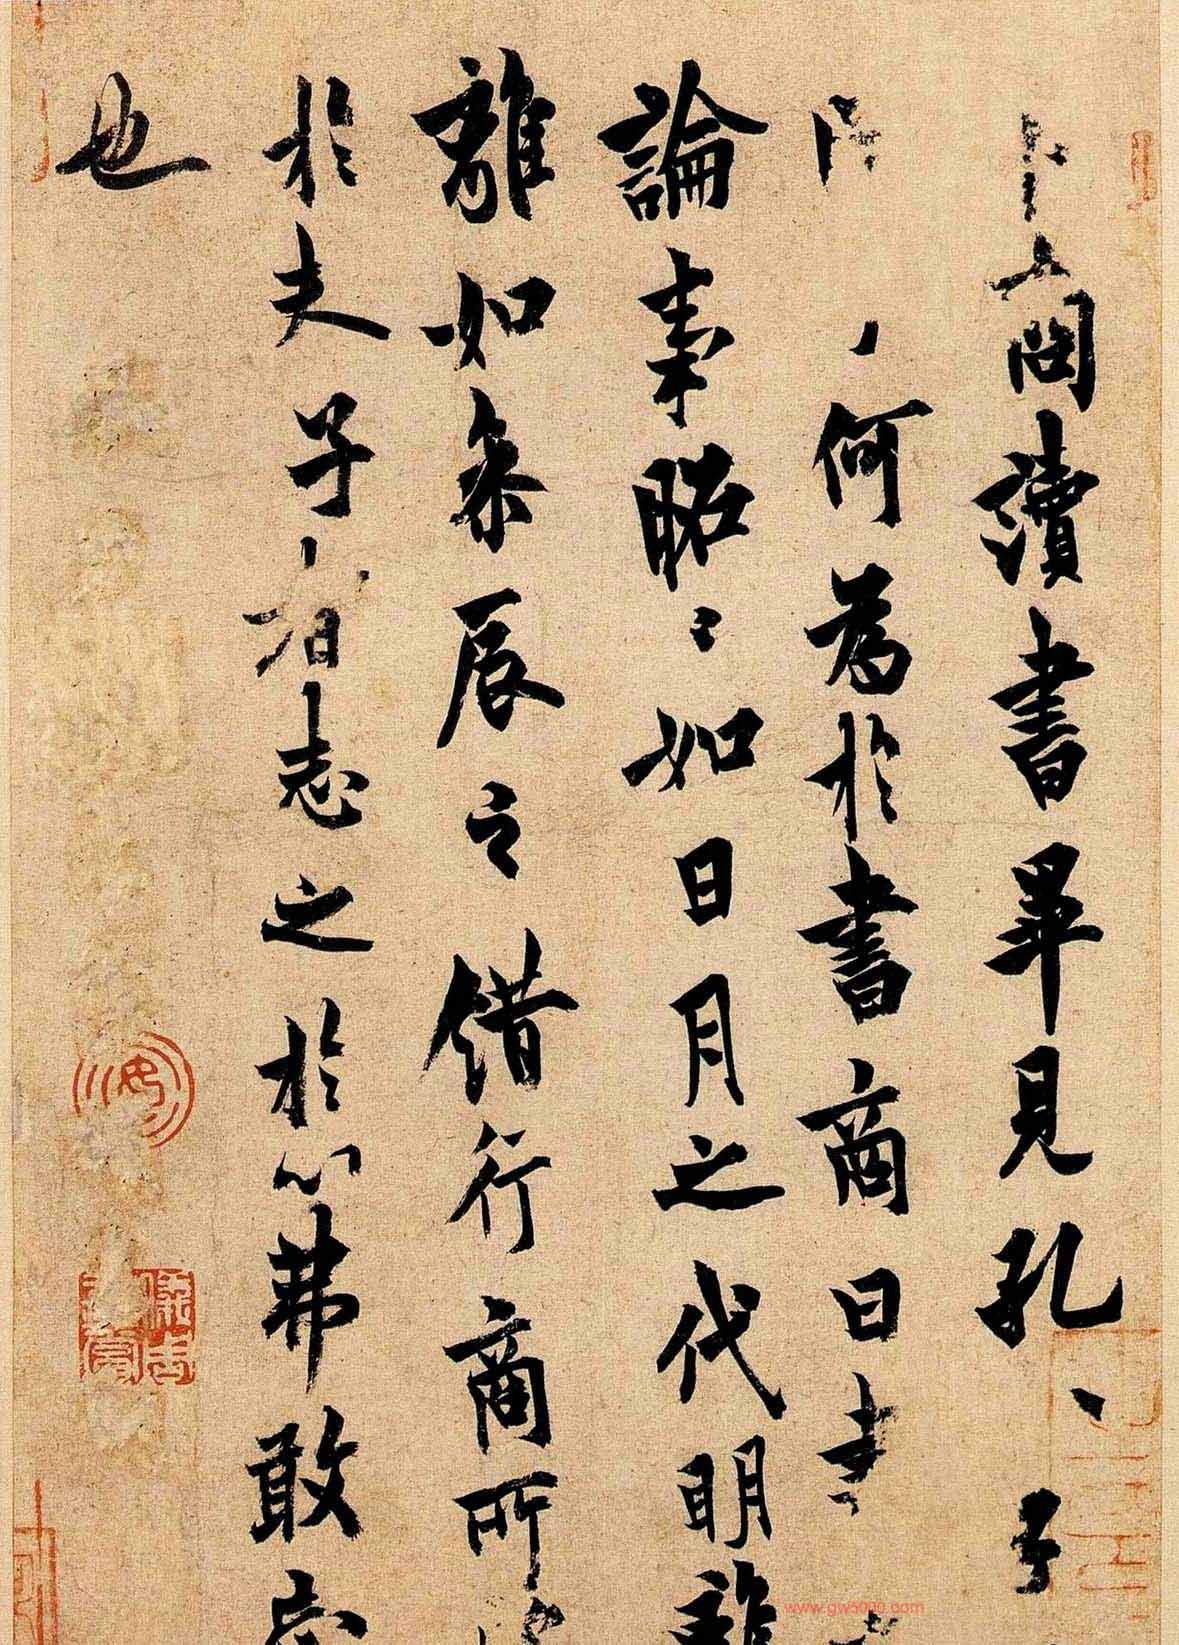 卜商讀書畢見孔、子
何為於書商曰書
論事昭〻如日月之代明離
離如參辰之錯行商所
於夫子者志之於心弗敢忘
也
www.gw5000.com